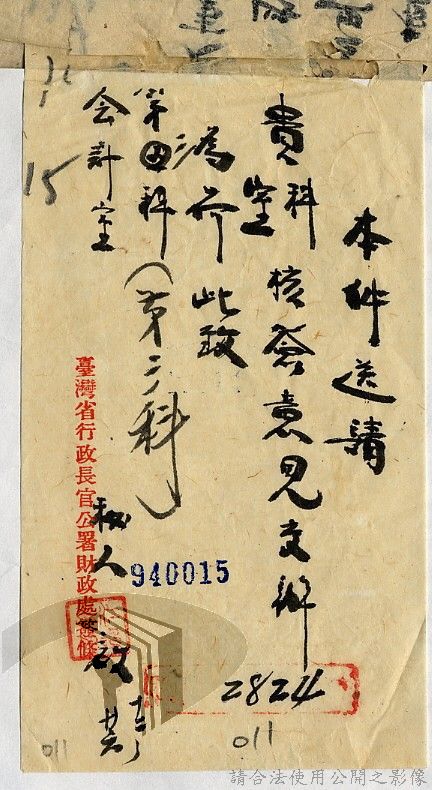 本件送請
貴科室核簽意見交辦
為荷此致
第四科(第二科)
会計室
15
臺灣省行政長官公署財政處簽條
啟
940015
2824
011
011
請合法使用公開之影像